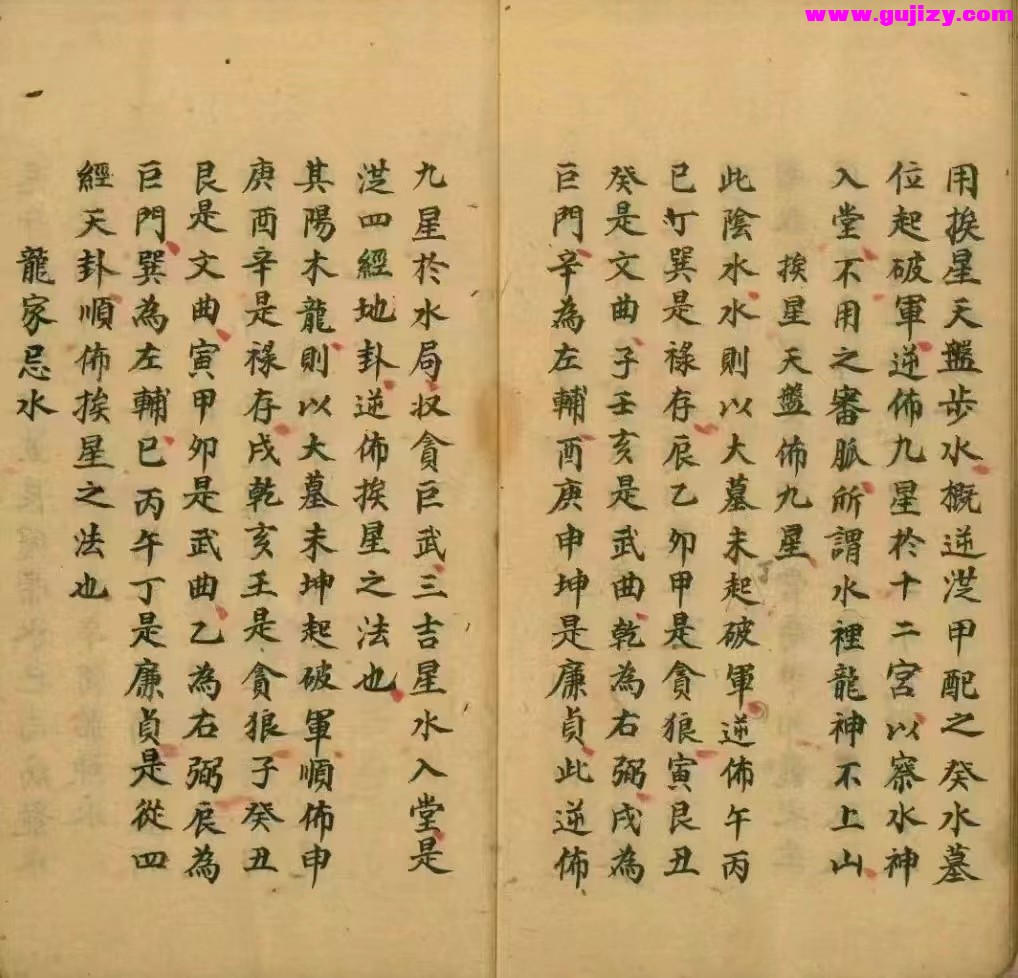 www.gujizy.com
用挨星天盤步水概逆从甲配之癸水墓
位起破軍逆佈九星於十二宮以察水神
入堂不用之審脈所謂水裡龍神不上山
挨星天盤佈九星
此陰水水則以大墓未起破軍逆佈午丙
丁
巳丁巽是祿存辰乙卯甲是貪狼寅艮丑
癸是文曲子壬亥是武曲乾為右弼戌為
巨門辛為左輔酉庚申坤是廉貞此逆佈
九星於水局収貪巨武三吉星水入堂是
从四經地卦逆佈挨星之法也
其陽木龍則以大墓未坤起破軍順佈申
庚酉辛是祿存戌乾亥壬是貪狼子癸丑
艮是文曲寅甲卯是武曲乙為右弼辰為
巨門巽為左輔巳丙午丁是廉貞是從四
經天卦順佈挨星之法也
龍家忌水